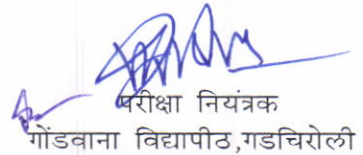 परीक्षा नियंत्रक
गोंडवाना विद्यापीठ,गडचिरोली